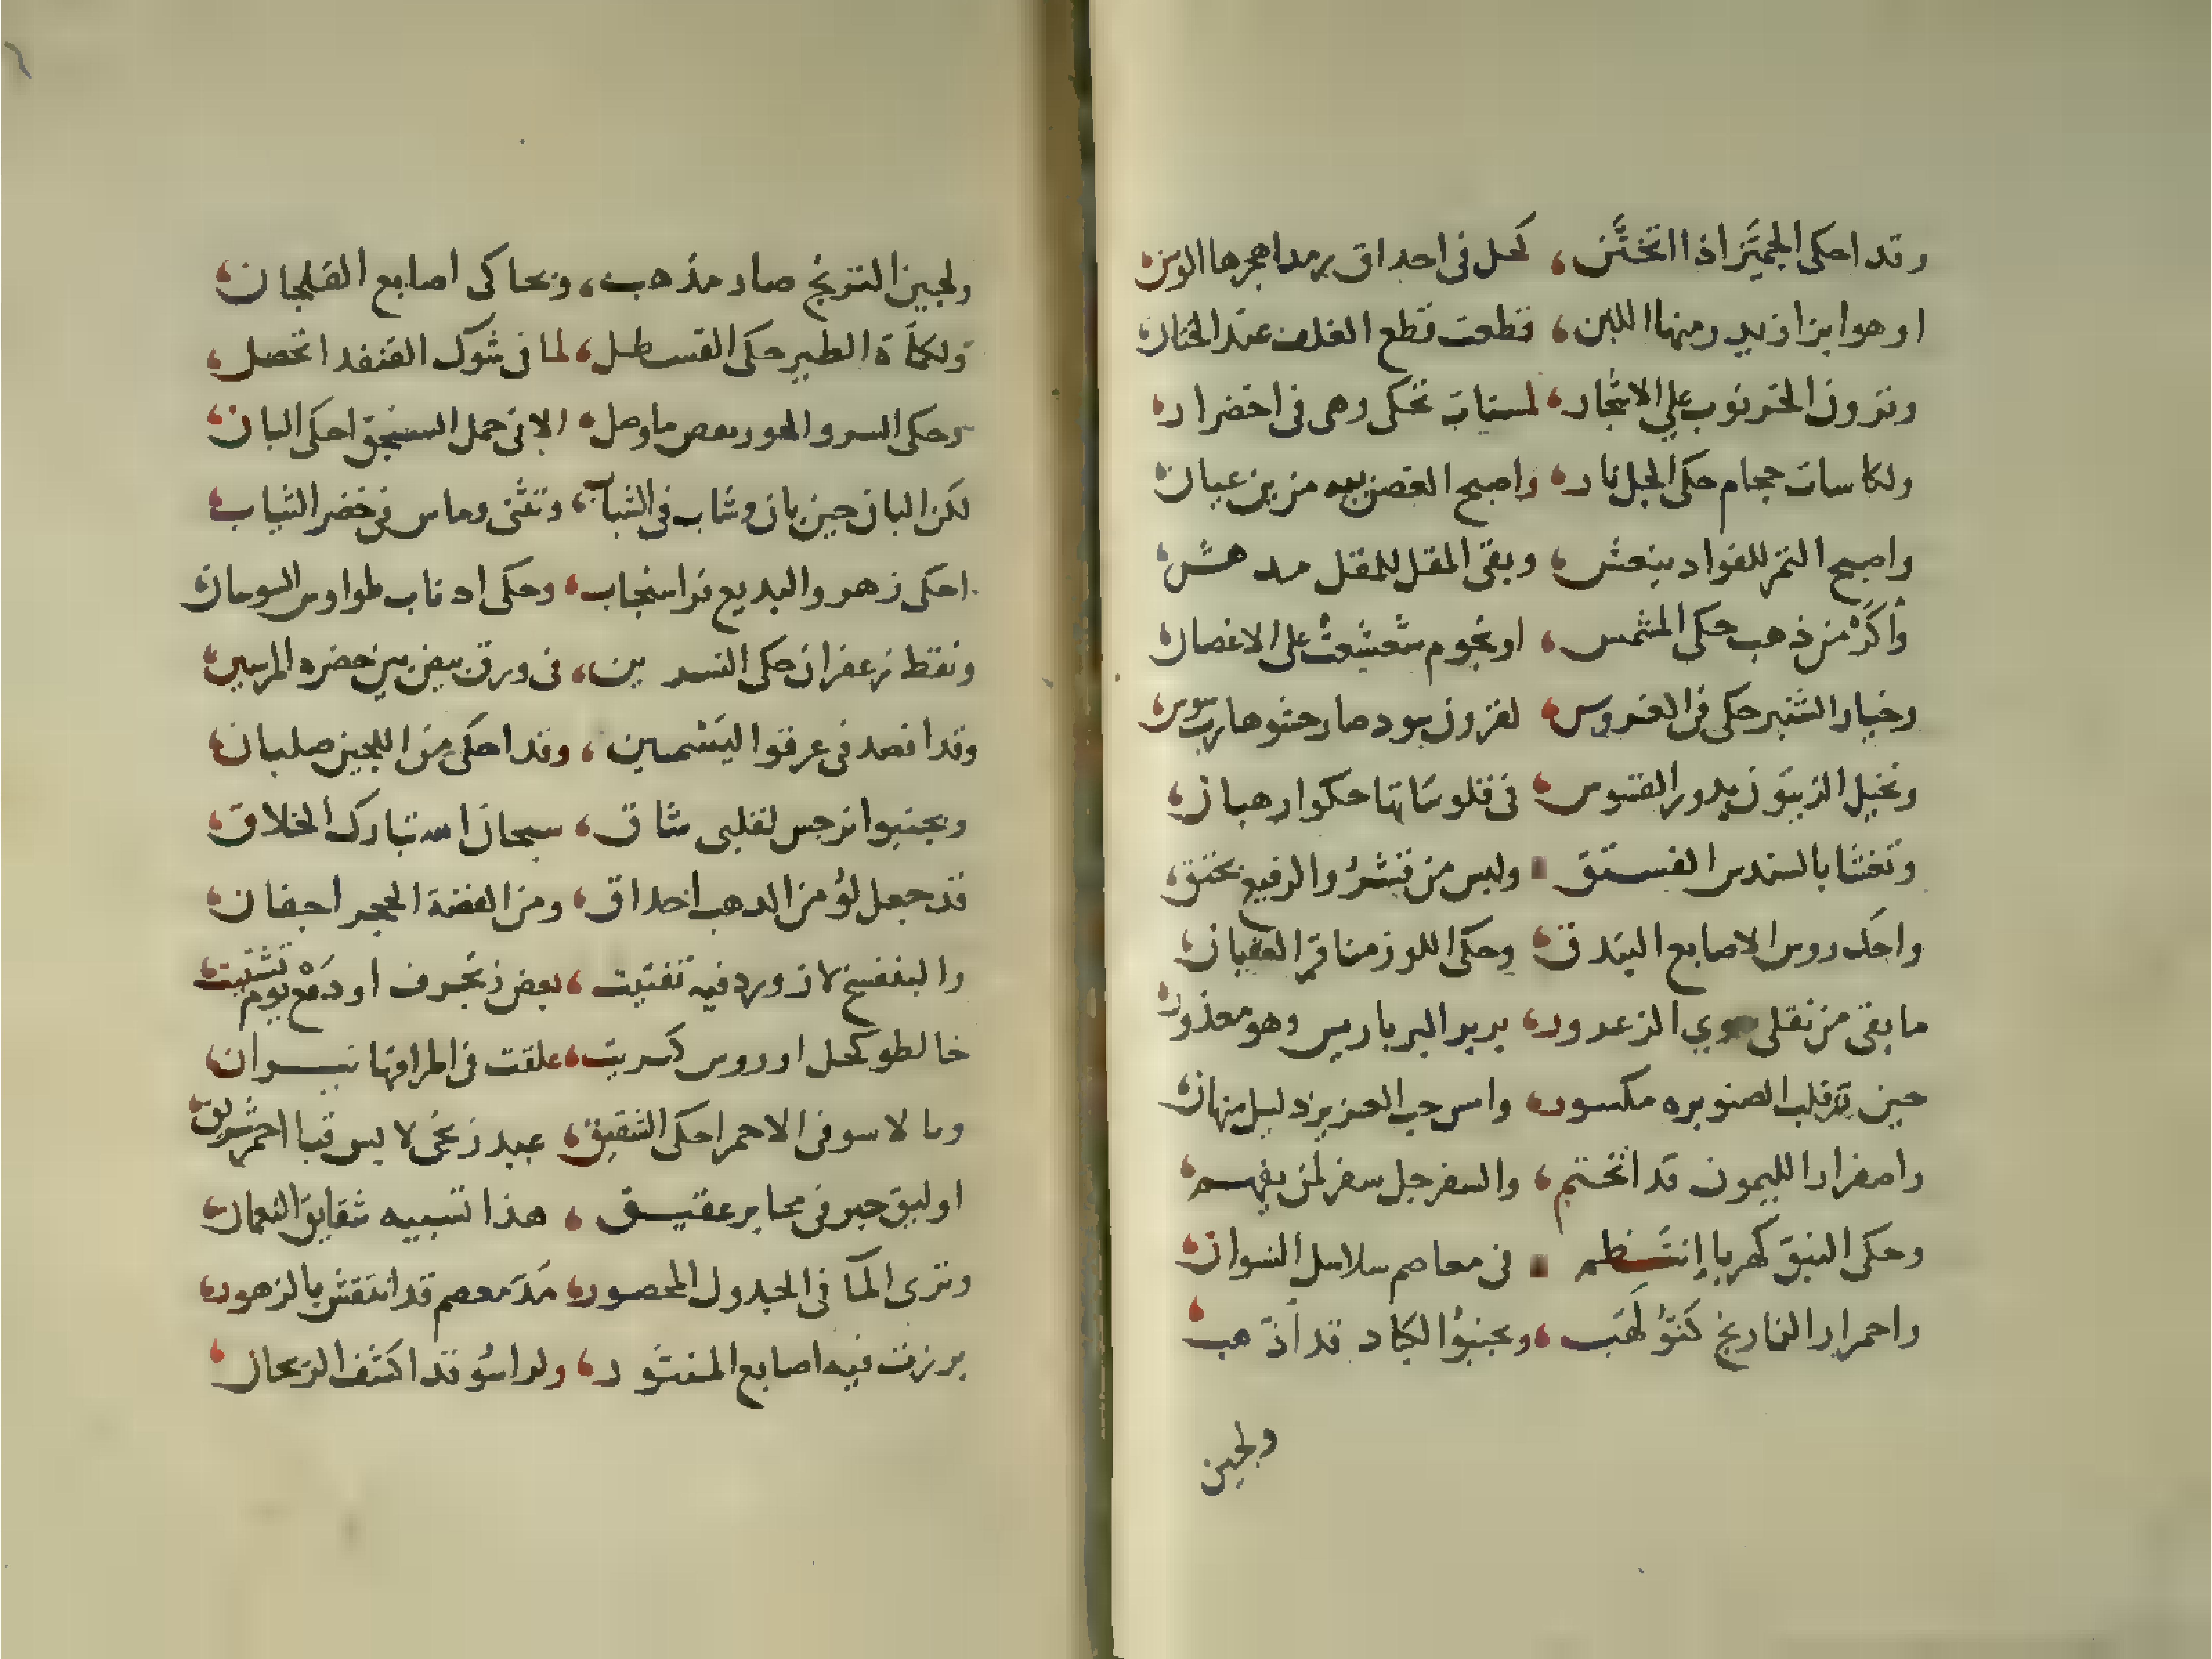 وقد احكى الجميز اذا اتختن، كحل فى احداق برمد اهجرها الوسن
او هو ابزاز يدر منها اللبن، قطعت قطع الغلف عند الختان
وترون الخرنوب على الاشجار، لمسنات تحكى وهى فى اخضرار
ولكاسات حجام حكى الجلنار، واصبح الغصن بيه مزين عيان
واصبح التمر للفواد ينعش، وبقى المقل للمقل مدهش
واكر من ذهب حكى المشمس، او نجوم شعشعت على الاغصان
وخيار الشنبر حكى فى الغروس، لقرون سود صار حشوها
ونخيل الزيتون بدور القسوس، فى قلوساتها حكوا رهبان
وتغشا بالسندس الفستق وليس من قشرو الرفيع يخنق،
واحك روس الاصابع البندق، وحكى اللوز مناقر العقبان
ما بقى من نقلى سوى الزعرور، بربر البرباريس وهو معذور
حين قلب الصنوبره مكسور، واس حب العزيز دليل منهان
واصفرار الليمون قد اتختم، والسفرجل سفر لمن يفهم
وحكى النبق كهربا إنتظم فى معاصم سلاسل النسوان
واحمرار النارنج كنو لهب، وبجنبو الكباد قد اذهب
ولجين
ولجين الترنج صار مذهب، ويحاكى اصابع الفلجان
ولكلاة الطير حكى القسطل، لما فى شوك القنفد اتحصل،
وحكى السرو الحور بعض ما وصل، الا فى حمل السنجق احكى البان
لكن البان حين بان وشاب فى الشباب، وتثنى وماس فى خضر الثياب
احكى زهرو البديع فرا سنجاب، وحكى ادناب طواوس السوسان
ونقط زعفران حكى النسرين، فى ورق بيض بين خضره المرسين
وقد انصد فى عرقو اليسمين، وقد احكى من اللجين صلبان
وبجنبوا نرجس لقلبى شاق، سبحان الله تبارك الخلاق
قد جعل لؤ من الدهب احداق، ومن الفضة الحجر اجفان
والبنفسج لازورد فيه تفتيت، بعض زنجرف او دمع يوم تشتيت
خالطو كحل او روس كبريت، علقت فى اطرافها نيران
وبالاسو فى الاحمر احكى الشقيق، عبد زنجى لابس قبا احمر شريق
او ليق حبر فى محابر عقيق، هذا تشبيه شقايق النعمان
وترى الما فى الجدول المحصور، مد معصم قد انتقش بالزهور
برزت فيه اصابع المنثور، ولراسو قد اكشف الريحان